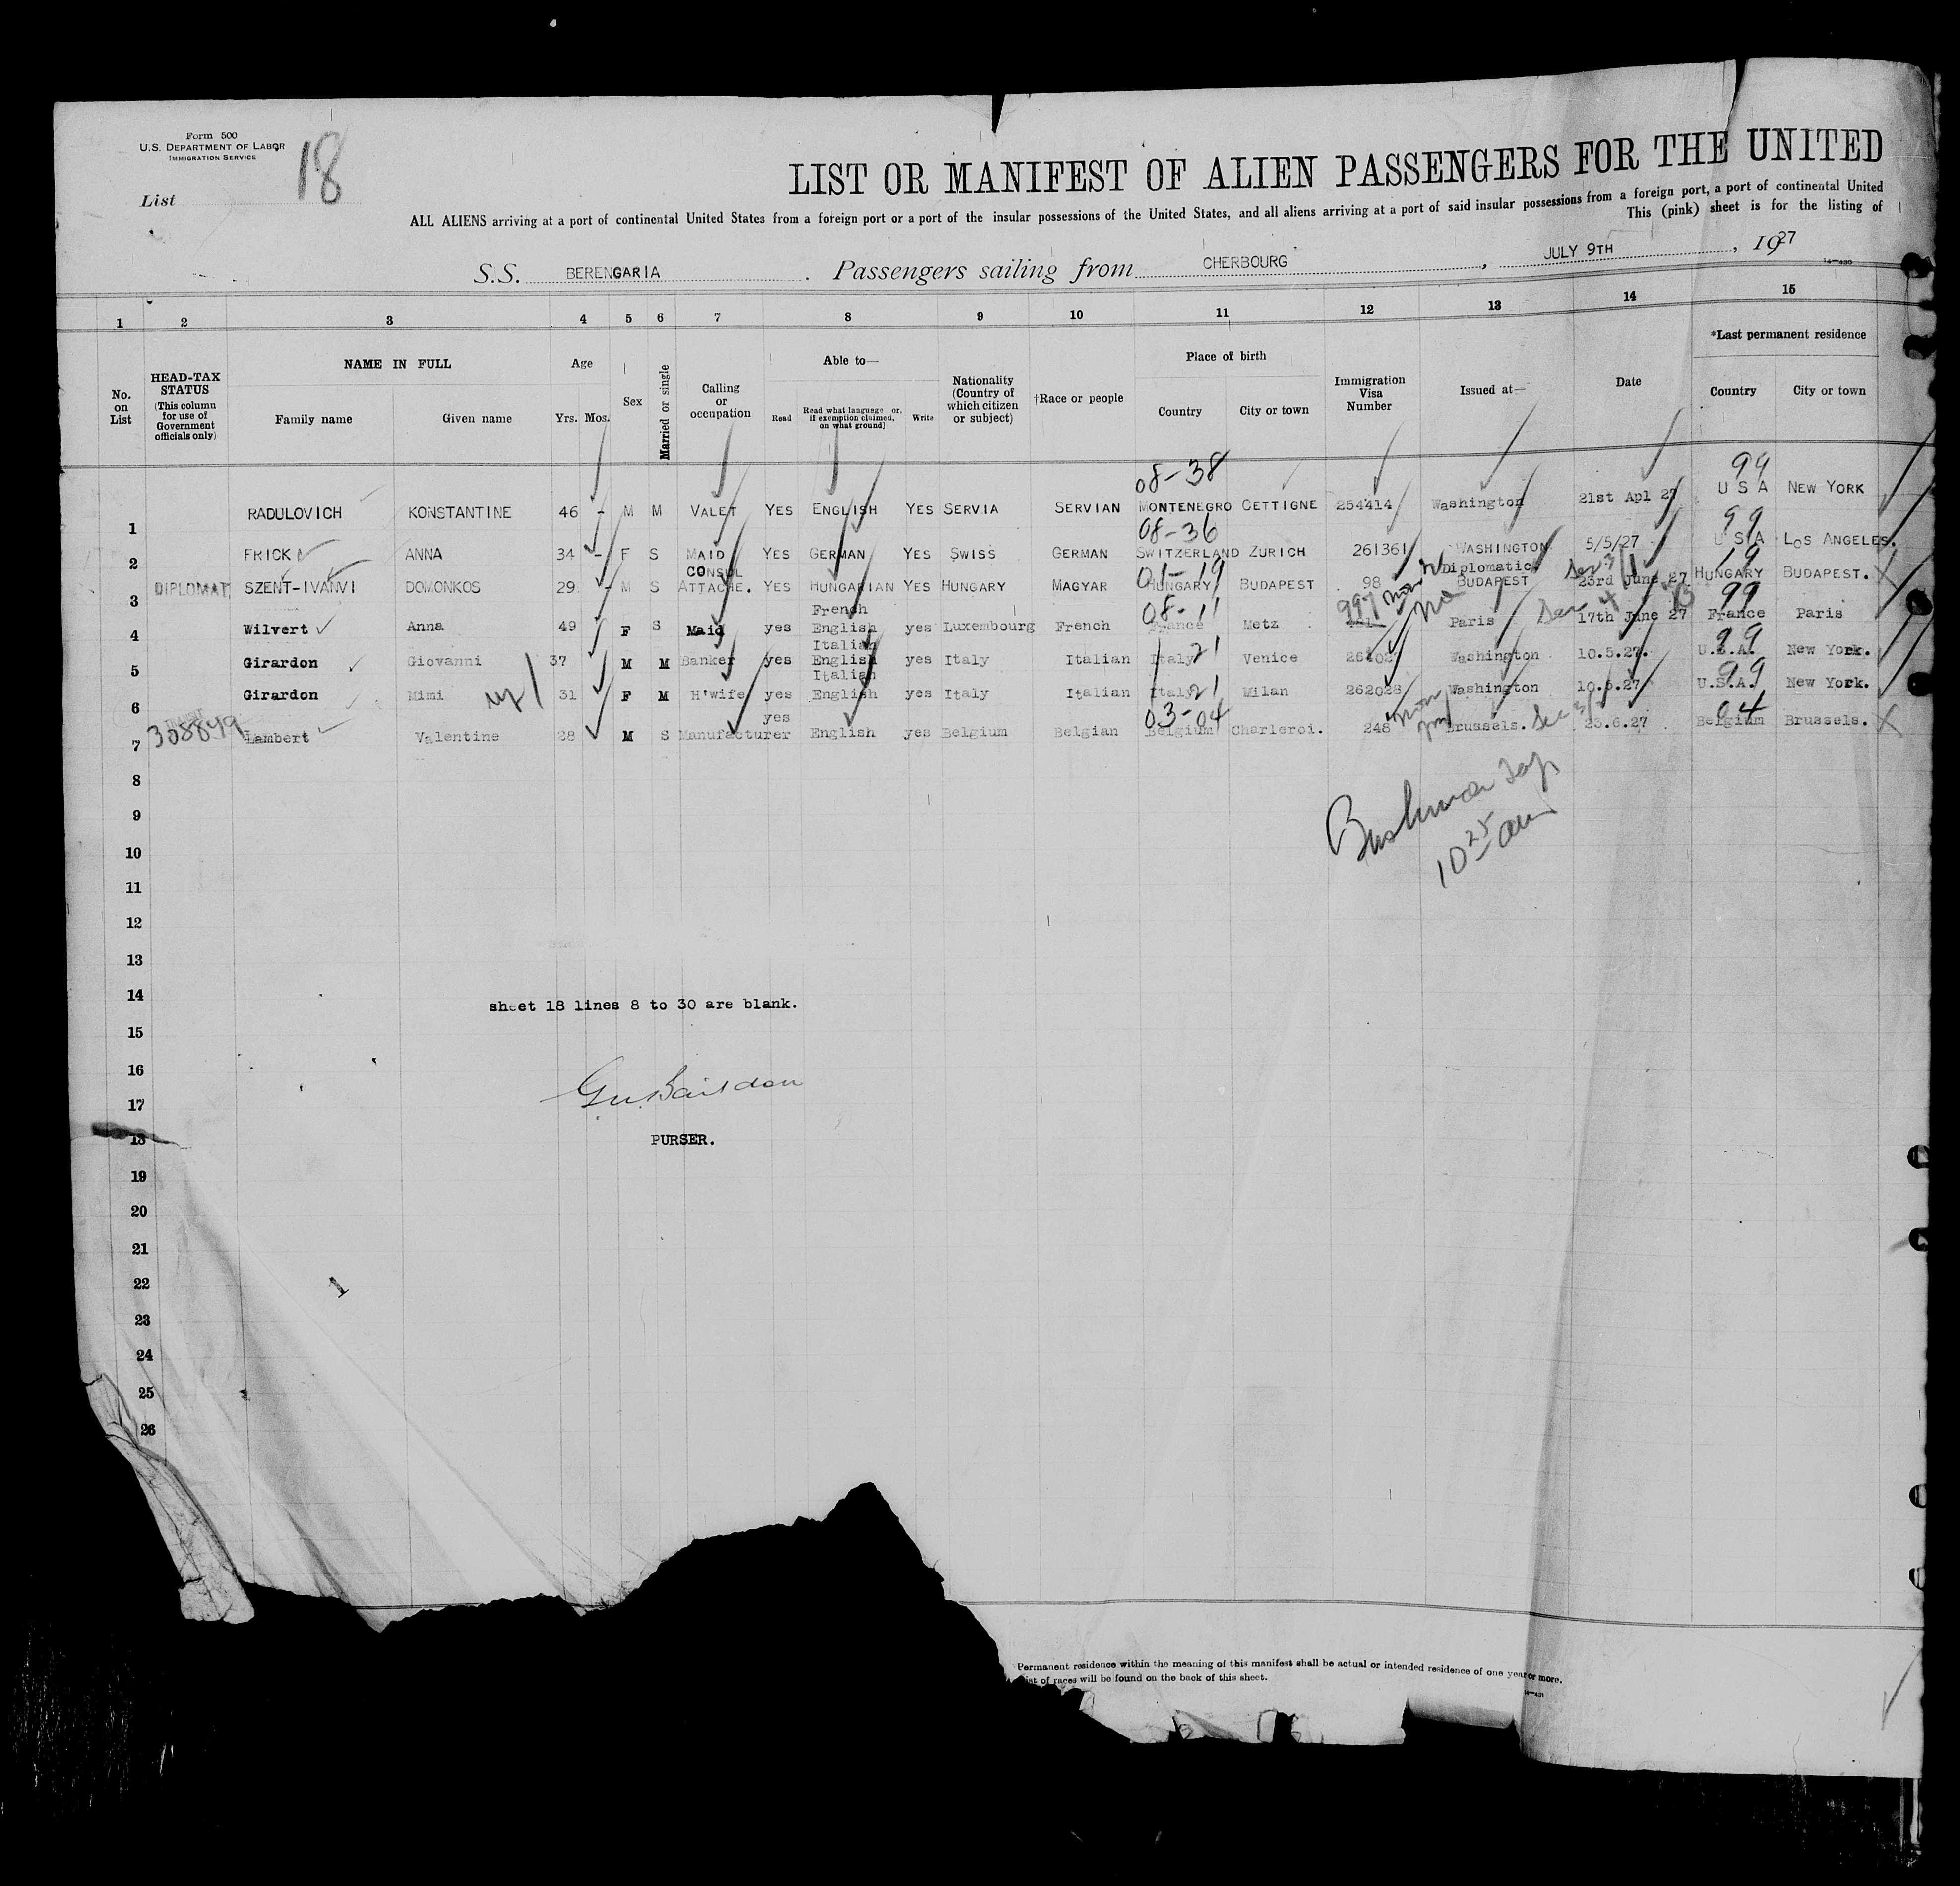 Form 500
U.S. DEPARTMENT OF LABOR
IMMIGRATION SERVICE
List 18
LIST OR MANIFEST OF ALIEN PASSENGERS FOR THE UNITED
ALL ALIENS arriving at a port of continental United States from a foreign port or a port of the insular possessions of the United States, and all aliens arriving at a port of said insular possessions from a foreign port, a port of continental United
This (pink) sheet is for the listing of
S.S. BERENGARIA . Passengers sailing from CHERBOURG , JULY 9TH , 1927
14—430
1 2 3 4 5 6 7 8 9 10 11 12 13 14 15
No. on List
HEAD-TAX STATUS (This column for use of Government officials only)
NAME IN FULL Family name Given name
Age Yrs. Mos.
Sex
Married or single
Calling or occupation
Able to— Read Read what language or, if exemption claimed, on what ground] Write
Nationality (Country of which citizen or subject)
†Race or people
Place of birth Country City or town
Immigration Visa Number
Issued at—
Date
*Last permanent residence Country City or town
08-38 99
1 RADULOVICH KONSTANTINE 46 - M M VALET YES ENGLISH YES SERVIA SERVIAN MONTENEGRO CETTIGNE 254414 Washington 21st Apl 27 U S A NEW YORK
08-36 99
2 FRICK ANNA 34 - F S MAID YES GERMAN YES SWISS GERMAN SWITZERLAND ZURICH 261361 WASHINGTON 5/5/27 U S A LOS ANGELES.
CONSUL 01-19 Diplomatic 19
3 DIPLOMAT SZENT-IVANVI DOMONKOS 29 - M S ATTACHE. YES HUNGARIAN YES HUNGARY MAGYAR HUNGARY BUDAPEST 98 BUDAPEST 23rd June 27 HUNGARY BUDAPEST.
French 08-11 997 99
4 Wilvert Anna 49 F S Maid yes English yes Luxembourg French France Metz Paris 17th June 27 France Paris
Italian 21 99
5 Girardon Giovanni 37 M M Banker yes English yes Italy Italian Italy Venice Washington 10.5.27. U.S.A. New York.
Italian 21 99
6 Girardon Mimi 31 F M H'wife yes English yes Italy Italian Italy Milan 262028 Washington 10.5.27 U.S.A. New York.
308849 yes 03-04 04
7 Lambert Valentine 28 M S Manufacturer English yes Belgium Belgian Belgium Charleroi. 248 Brussels. 23.6.27 Belgium Brussels.
8
9
10
10 25 am
11
12
13
14
sheet 18 lines 8 to 30 are blank.
15
16
17
18
PURSER.
19
20
21
22
23
24
25
26
Permanent residence within the meaning of this manifest shall be actual or intended residence of one year or more.
list of races will be found on the back of this sheet.